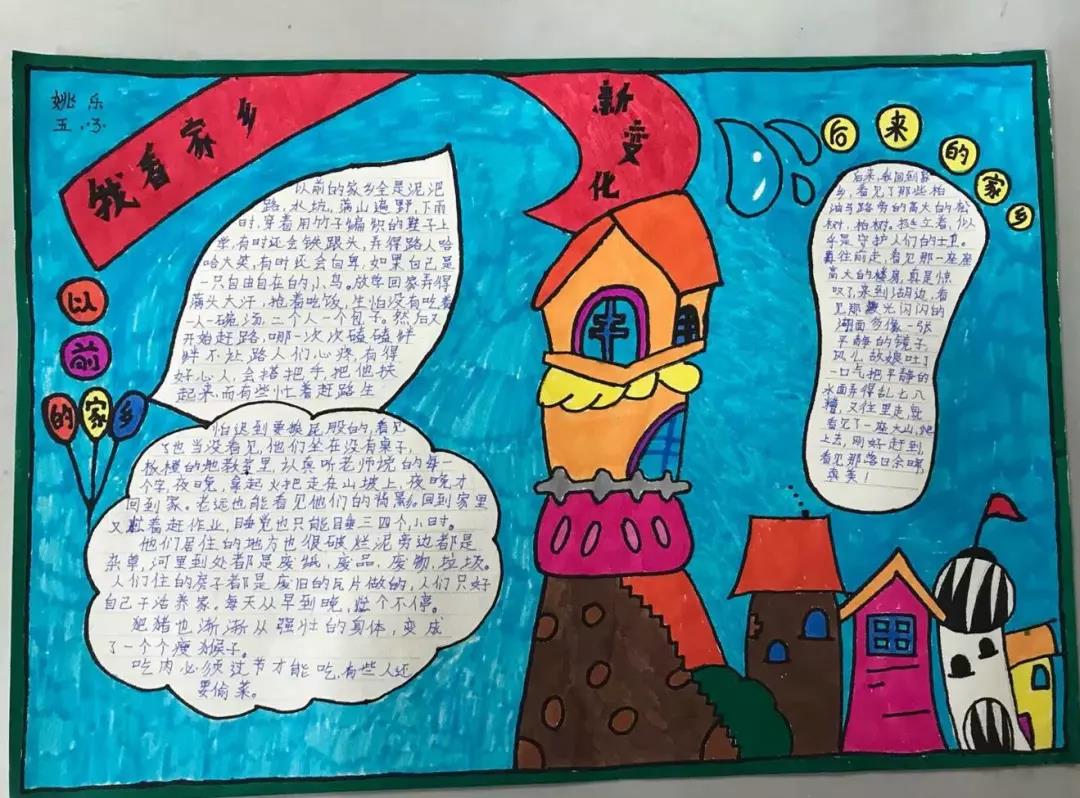 姚乐
五.3.
我看家乡
新变化
以前
的家乡
以前的家乡全是泥泥
路,水坑,满山遍野,下雨
时,穿着用竹子编织的鞋子上
学,有时还会铁跟头,弄得路人哈
哈大笑,有时还会自卑,如果自己是
一只自由自在的小鸟。放学回家弄得
满头大汗,抢着吃饭,生怕没有吃着
一人一碗汤,二个人一个包子。然后又
开始赶路,哪一次次磕磕绊
绊不让路人们心疼,有得
好心人,会搭把手,把他扶
起来,而有些忙着赶路生
怕迟到要挨屁股的,看见
了也当没看见,他们坐在没有桌子,
板櫈的地教室里,认真听老师说的每一
个字,夜晚,拿起火把走在山坡上,夜晚才
回到家。老远也能看见他们的背影,回到家里
又着赶作业,睡觉也只能睡三四个小时。
他们居住的地方也很破烂泥旁边都是
杂草,河里到处都是废纸,废品,废物,垃圾。
人们住的房子都是废旧的瓦片做的,人们只好
自己干活养家。每天从早到晚,忙个不停。
肥猪也渐渐从强壮的身体,变成
了一个个瘦猴子。
吃肉必须过节才能吃,有些人还
要偷菜。
后来的家乡
后来,我回到家
乡,看见了那些柏
油马路旁的高大的松
树,柏树。挺立着,似
乎是守护人们的士卫。
再往前走,看见那一座座
高大的楼房,真是惊
叹了,来到湖边,看
见那光闪闪的
湖面多像一张
平静的镜子,
风儿故娘吐了
一口气把平静的
水面弄得乱七八
糟,又往里走,
看见了一座大山,爬
上去,刚好赶到,
看见那落日余晖,
真美!